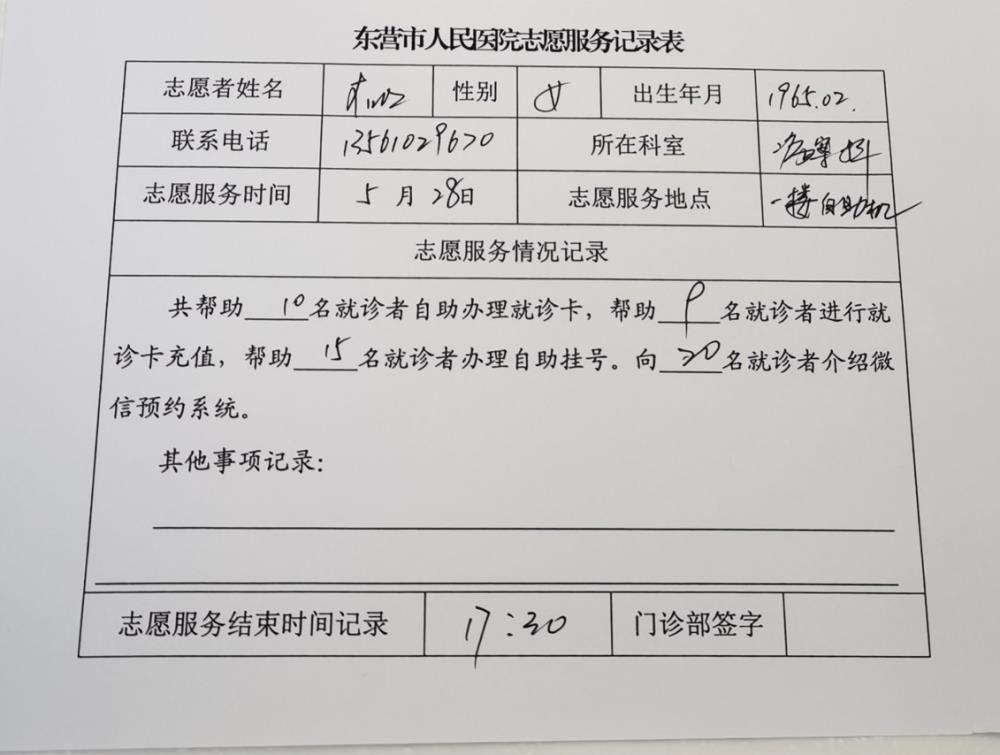 东营市人民医院志愿服务记录表
志愿者姓名 性别 女 出生年月 1965.02.
联系电话 13561029670 所在科室
志愿服务时间 5月28日 志愿服务地点 一楼自助机
志愿服务情况记录
共帮助10名就诊者自助办理就诊卡，帮助9名就诊者进行就
诊卡充值，帮助15名就诊者办理自助挂号。向20名就诊者介绍微
信预约系统。
其他事项记录：
志愿服务结束时间记录 17:30 门诊部签字